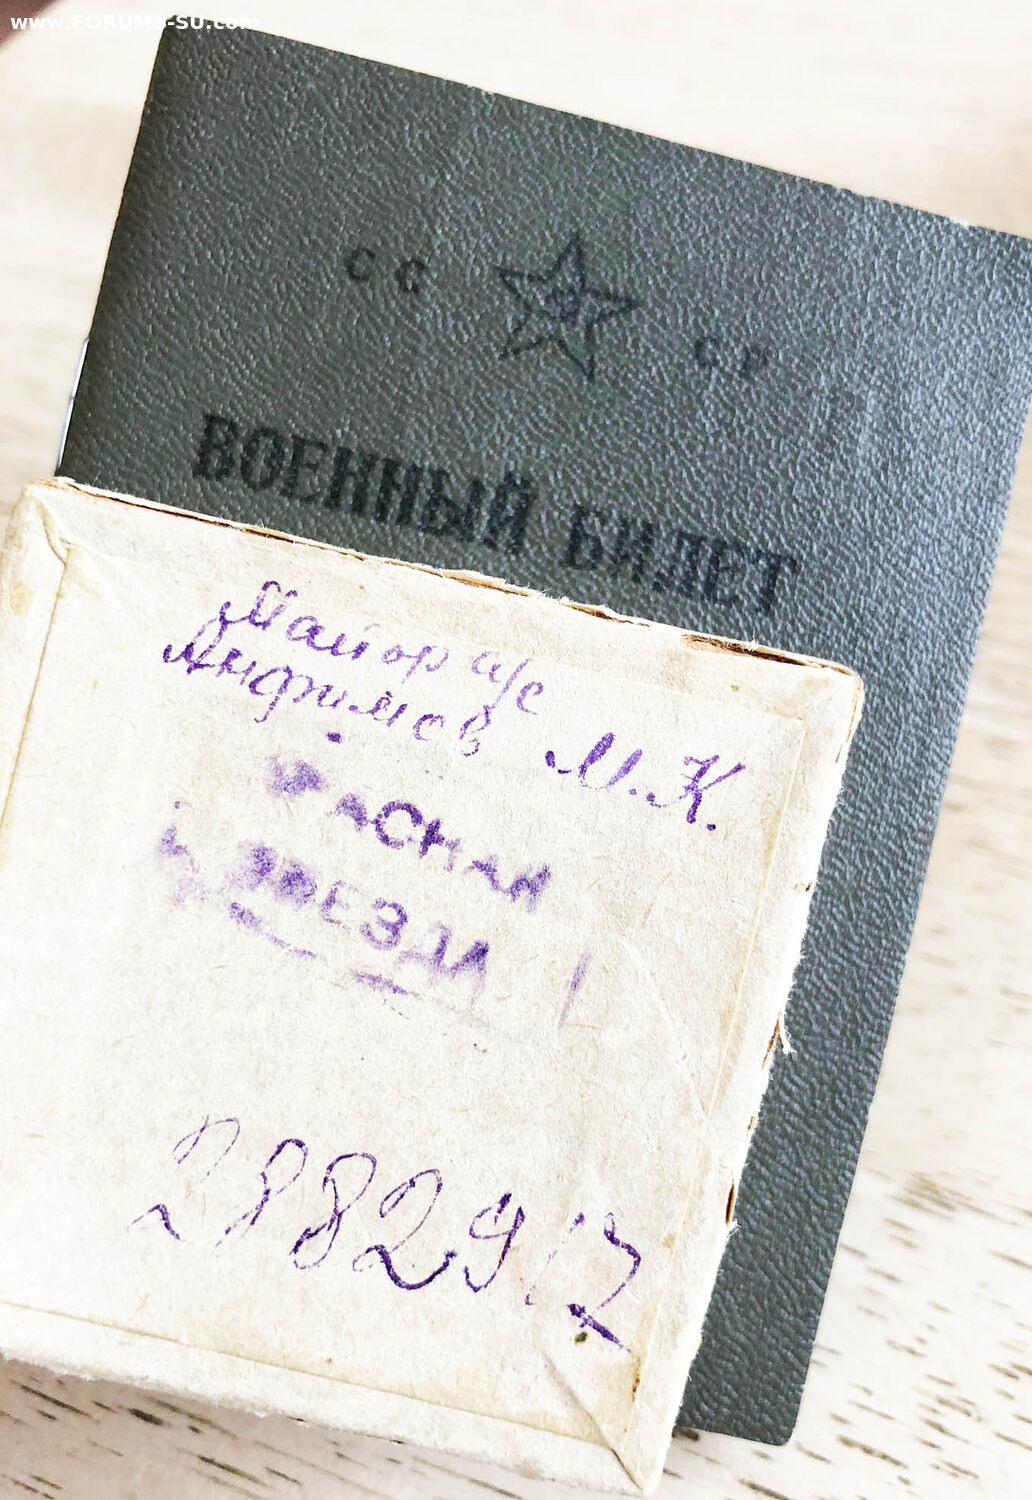 www.FORUMS-SU.com
СС СР
ВОЕННЫЙ БИЛЕТ
Майор а/с
Анфимов М.К.
КРАСНАЯ
ЗВЕЗДА
2882917